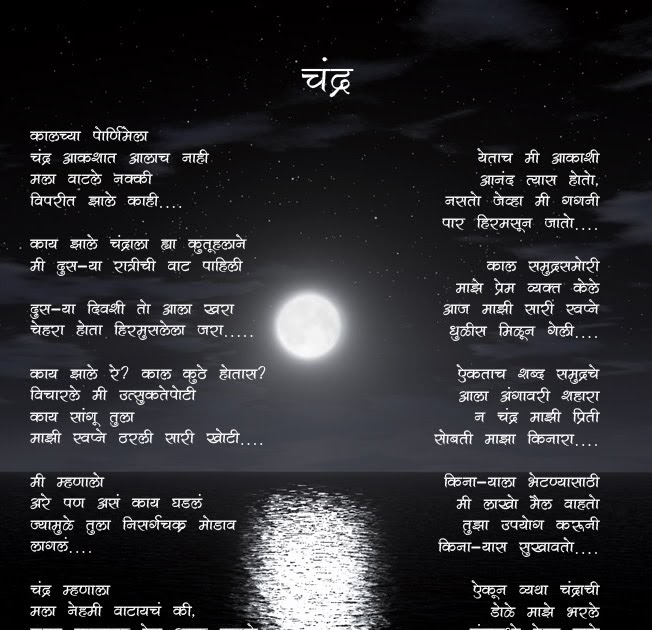 चंद्र
कालच्या पोर्णिमेला
चंद्र आकशात आलाच नाही
मला वाटले नक्की
विपरीत झाले काही....
काय झाले चंद्राला ह्या कुतूहलाने
मी दुस-या रात्रीची वाट पाहिली
दुस-या दिवशी तो आला खरा
चेहरा होता हिरमुसलेला जरा.....
काय झाले रे? काल कुठे होतास?
विचारले मी उत्सुकतेपोटी
काय सांगू तुला
माझी स्वप्ने ठरली सारी खोटी....
मी म्हणालो
अरे पण असं काय घडलं
ज्यामुळे तुला निसर्गचक्र मोडाव
लागलं....
चंद्र म्हणाला
मला नेहमी वाटायचं की,
येताच मी आकाशी
आनंद त्यास होतो,
नसतो जेव्हा मी गगनी
पार हिरमसून जातो....
काल समुद्रसमोरी
माझे प्रेम व्यक्त केले
आज माझी सारी स्वप्ने
धुळीस मिळून गेली....
ऐकताच शब्द समुद्रचे
आला अंगावरी शहारा
न चंद्र माझी प्रिती
सोबती माझा किनारा....
किना-याला भेटण्यासाठी
मी लाखो मैल वाहतो
तुझा उपयोग करूनी
किना-यास सुखावतो....
ऐकून व्यथा चंद्राची
डोळे माझे भरले